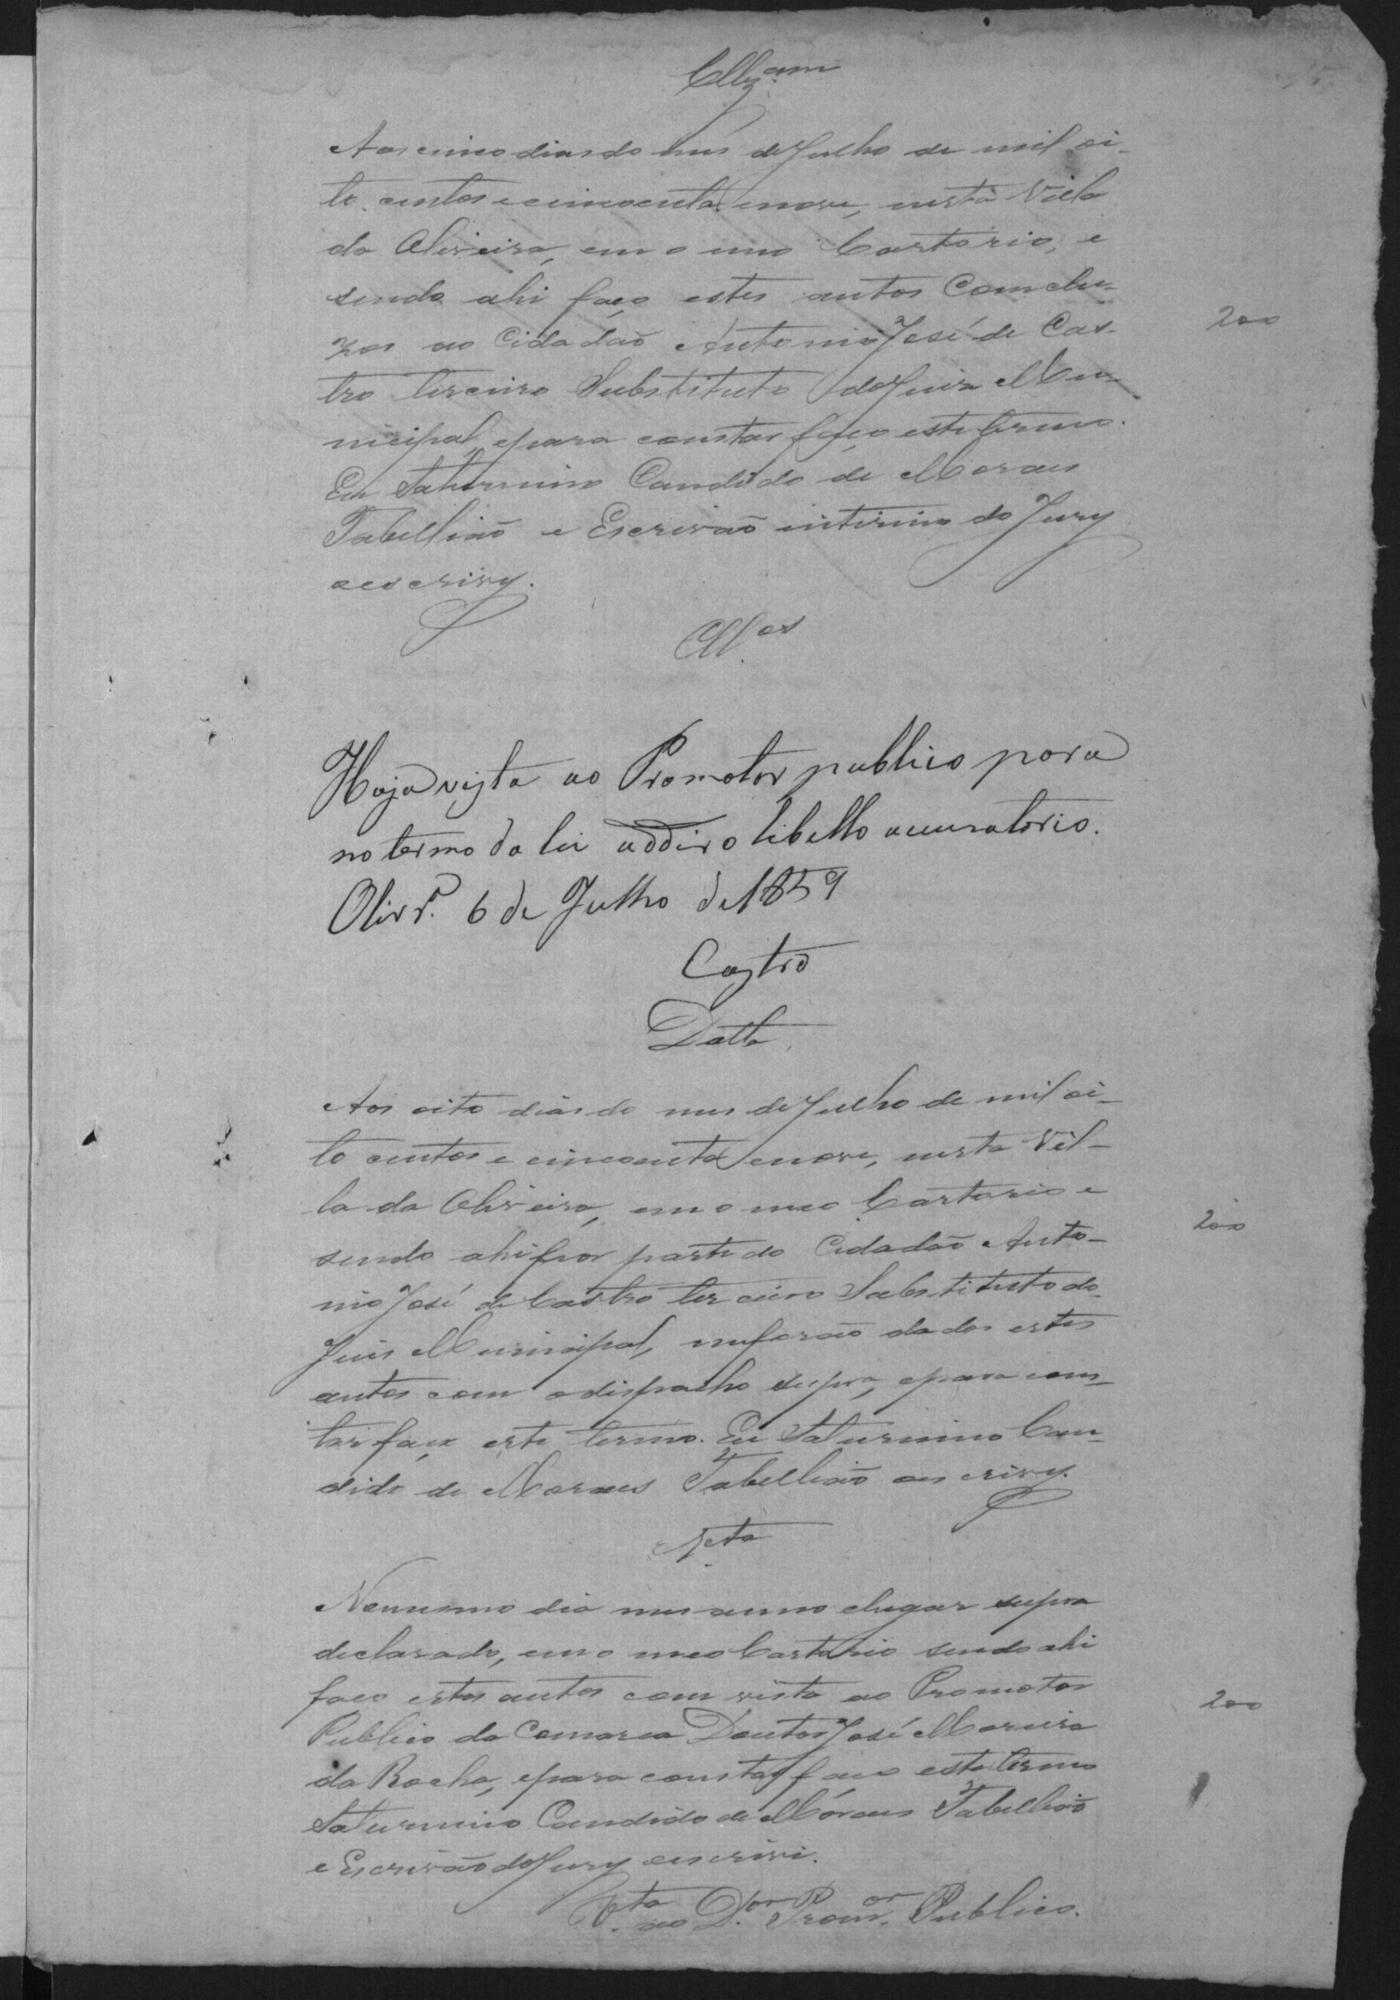 Cllz.am
Aos cinco dias do mes de Julho de mil oi-
to centos e cincoenta e nove, nesta Villa
da Oliveira, em o meo Cartorio, e
sendo ahi faço estes autos Comclu-
zos ao Cidadão Antonio José de Cas-
tro terceiro Substituto do Juiz Mu-
nicipal, e para constar faço este termo.
Eu Saturnino Candido de Moraes
Tabellião e Escrivão interino do Jury
o escrivy.
Cllos
200
Haja vista ao Promotor publico para
no termo da lei addir o libello accusatorio.
Olivr.ª 6 de Julho de 1859
Castro
Datta
Aos oito dias do mes de Julho de mil oi-
to centos e cincoenta e nove, nesta Vil-
la da Oliveira, em o meo Cartorio e
sendo ahi por parte do Cidadão Anto-
nio José de Castro terceiro Substituto do
Juis Municipal, me forão dados estes
autos com o dispacho supra, e para cons-
tar faço este termo. Eu Saturnino Can-
dido de Moraes Tabellião o escrivy.
200
V.ta
No mesmo dia mes anno e lugar supra
declarado, em o meo Cartorio sendo ahi
faço estes autos com vista ao Promotor
Publico da Comarca Doutor José Moreira
da Rocha, e para constar faço este termo
Saturnino Candido de Moraes Tabellião
e Escrivão do Jury o escrivi.
200
V.ta ao D.or Prom.or Publico.